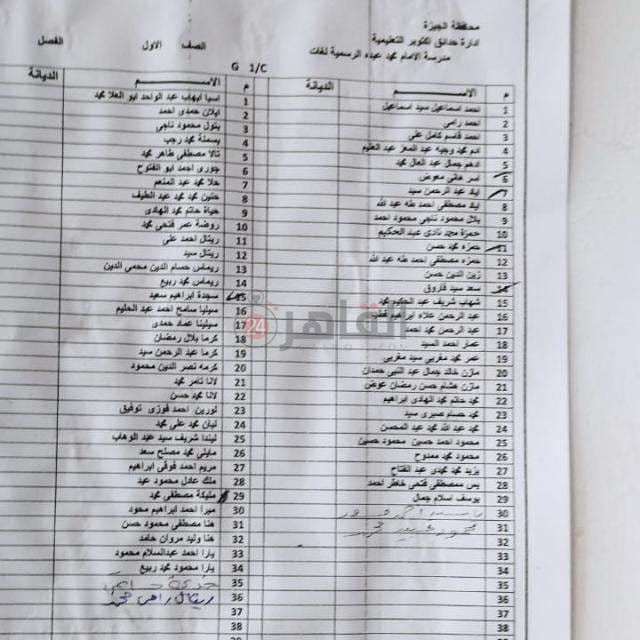 محافظة الجيزة
ادارة حدائق اكتوبر التعليمية
مدرسة الامام محمد عبده الرسمية لغات
الصف الاول
الفصل
G 1/C
م الاســـم الديانة
1 احمد اسماعيل سيد اسماعيل
2 احمد رامى
3 احمد قاسم كامل على
4 ادم محمد وجيه عبد المعز عبد العليم
5 ادهم جمال عبد العال محمد
6 اسر هانى معوض
7 اياد عبد الرحمن سيد
8 اياد مصطفى احمد طه عبد الله
9 بلال محمود ناجى محمود احمد
10 حمزة محمد نادى عبد الحكيم
11 حمزه محمد حسن
12 حمزه مصطفى احمد طه عبد الله
13 زين الدين حسن
14 سعد سيد فاروق
15 شهاب شريف عبد الحكيم محمد
16 عبد الرحمن علاء ابراهيم
17 عبد الرحمن محمد احمد
18 عمر احمد السيد
19 عمر محمد مغربى سيد مغربى
20 مازن خالد جمال عبد النبى حمدان
21 مازن هشام حسن رمضان عوض
22 محمد حاتم محمد الهادى ابراهيم
23 محمد حسام صبرى سيد
24 محمد عبد الله محمد عبد المحسن
25 محمود احمد حسين محمود حسين
26 محمود محمد ممدوح
27 يزيد محمد مهدى عبد الفتاح
28 يس مصطفى فتحى خاطر احمد
29 يوسف اسلام جمال
30
31 محمود
32
33
34
35
36
37
38
م الاســـم الديانة
1 اسيا ايهاب عبد الواحد ابو العلا محمد
2 ايلان حمدى احمد
3 بتول محمود ناجى
4 بسملة محمد رجب
5 تالا مصطفى طاهر محمد
6 جورى احمد ابو الفتوح
7 حلا محمد عبد المنعم
8 حنين محمد محمد عبد اللطيف
9 حياة حاتم محمد الهادى
10 روضة عمر فتحى محمد
11 ريتال احمد على
12 ريتال سيد
13 ريماس حسام الدين محمى الدين
14 ريماس محمد ربيع
15 سجدة ابراهيم سعيد
16 سيليا سامح احمد عبد الحليم
17 سيلينا عماد حمدى
18 كرما بلال رمضان
19 كرما عبد الرحمن سيد
20 كرمه نصر الدين محمود
21 لانا تامر محمد
22 لانا محمد حسن
23 لورين احمد فوزى توفيق
24 ليان محمد على محمد
25 ليندا شريف سيد عبد الوهاب
26 مايلى محمد مصلح سعد
27 مريم احمد فوقى ابراهيم
28 ملك عادل محمود عبد
29 مليكة مصطفى محمد
30 ميرا احمد ابراهيم محمود
31 هنا مصطفى محمود حسن
32 هنا وليد مروان حامد
33 يارا احمد عبدالسلام محمود
34 يارا محمد محمود ربيع
35
36 ريتال
37
38
الديانة
القاهرة 24